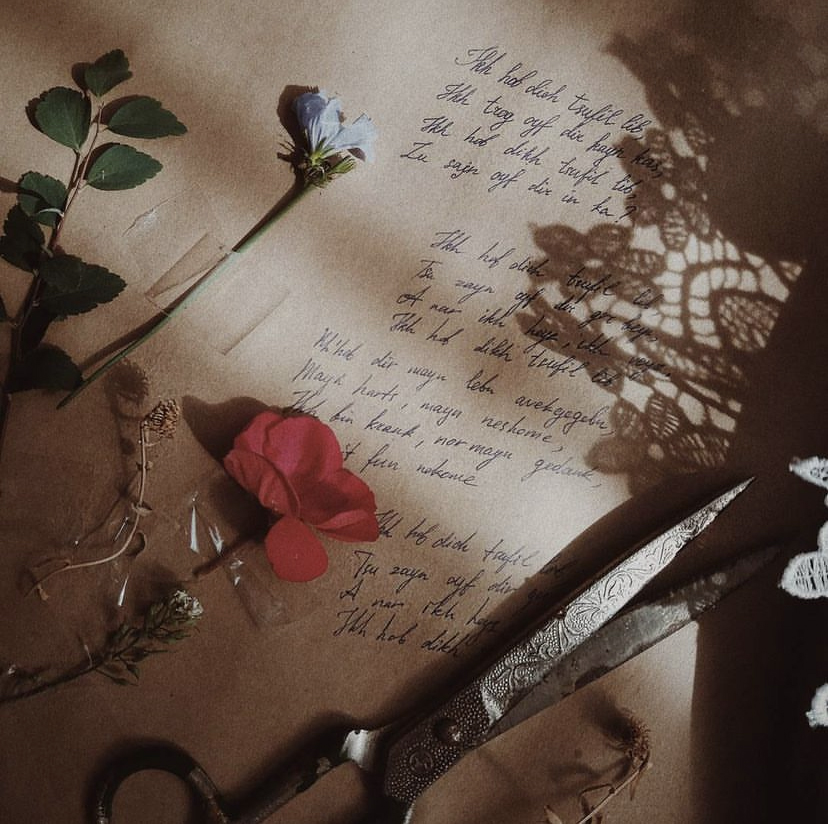 Ikh hob dich tsufil lib
Ikh trog oyf dir kayn has,
Ikh hob dikh tsufil lib,
Zu sajn oyf dir in ka?
Ikh hob dich tsufil lib,
Tsu zayn oyf dir gor beyz,
A nar ikh heys, ikh veys,
Ikh hob dikh tsufil lib
Kh'hob dir mayn lebn avekgegebn,
Mayn harts, mayn neshome,
Ikh bin krank, nor mayn gedank,
fun nekome
Ikh hob dich tsufil
Tsu zayn oyf dir
A nar ikh heys
Ikh hob dikh